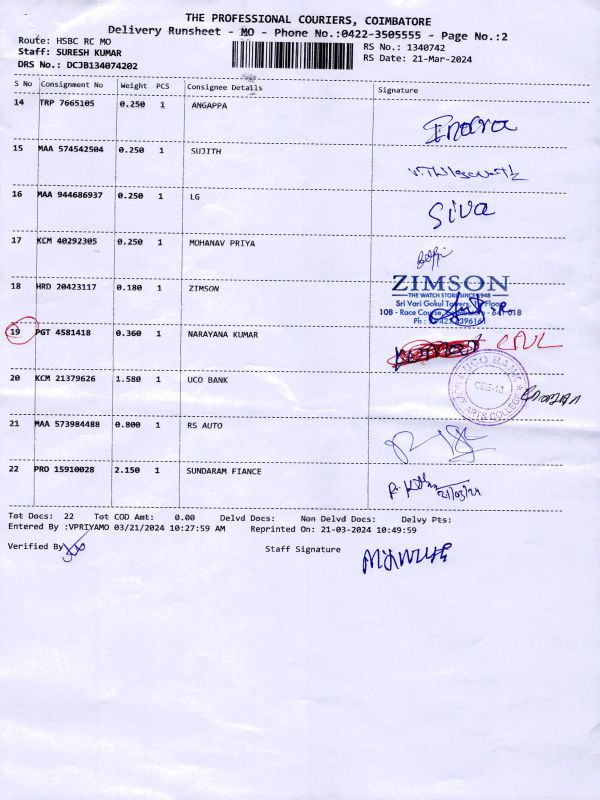 THE PROFESSIONAL COURIERS, COIMBATORE
Delivery Runsheet - MO - Phone No.:0422-3505555 - Page No.:2
Route: HSBC RC MO
Staff: SURESH KUMAR
DRS No.: DCJB134074202
RS No.: 1340742
RS Date: 21-Mar-2024
S No Consignment No Weight PCS Consignee Details Signature
14 TRP 7665105 0.250 1 ANGAPPA
Indra
15 MAA 574542504 0.250 1 SUJITH
16 MAA 944686937 0.250 1 LG
Siva
17 KCM 40292305 0.250 1 MOHANAV PRIYA
18 HRD 20423117 0.180 1 ZIMSON
ZIMSON
THE WATCH STORE SINCE 1948
Sri Vari Gokul Towers,
108 - Race Course,
19 PGT 4581418 0.360 1 NARAYANA KUMAR
20 KCM 21379626 1.580 1 UCO BANK
UCO BANK
ARTS COLLEGE
21 MAA 573984488 0.800 1 RS AUTO
22 PRO 15910028 2.150 1 SUNDARAM FIANCE
21/03/24
Tot Docs: 22 Tot COD Amt: 0.00 Delvd Docs: Non Delvd Docs: Delvy Pts:
Entered By :VPRIYAMO 03/21/2024 10:27:59 AM Reprinted On: 21-03-2024 10:49:59
Verified By
Staff Signature